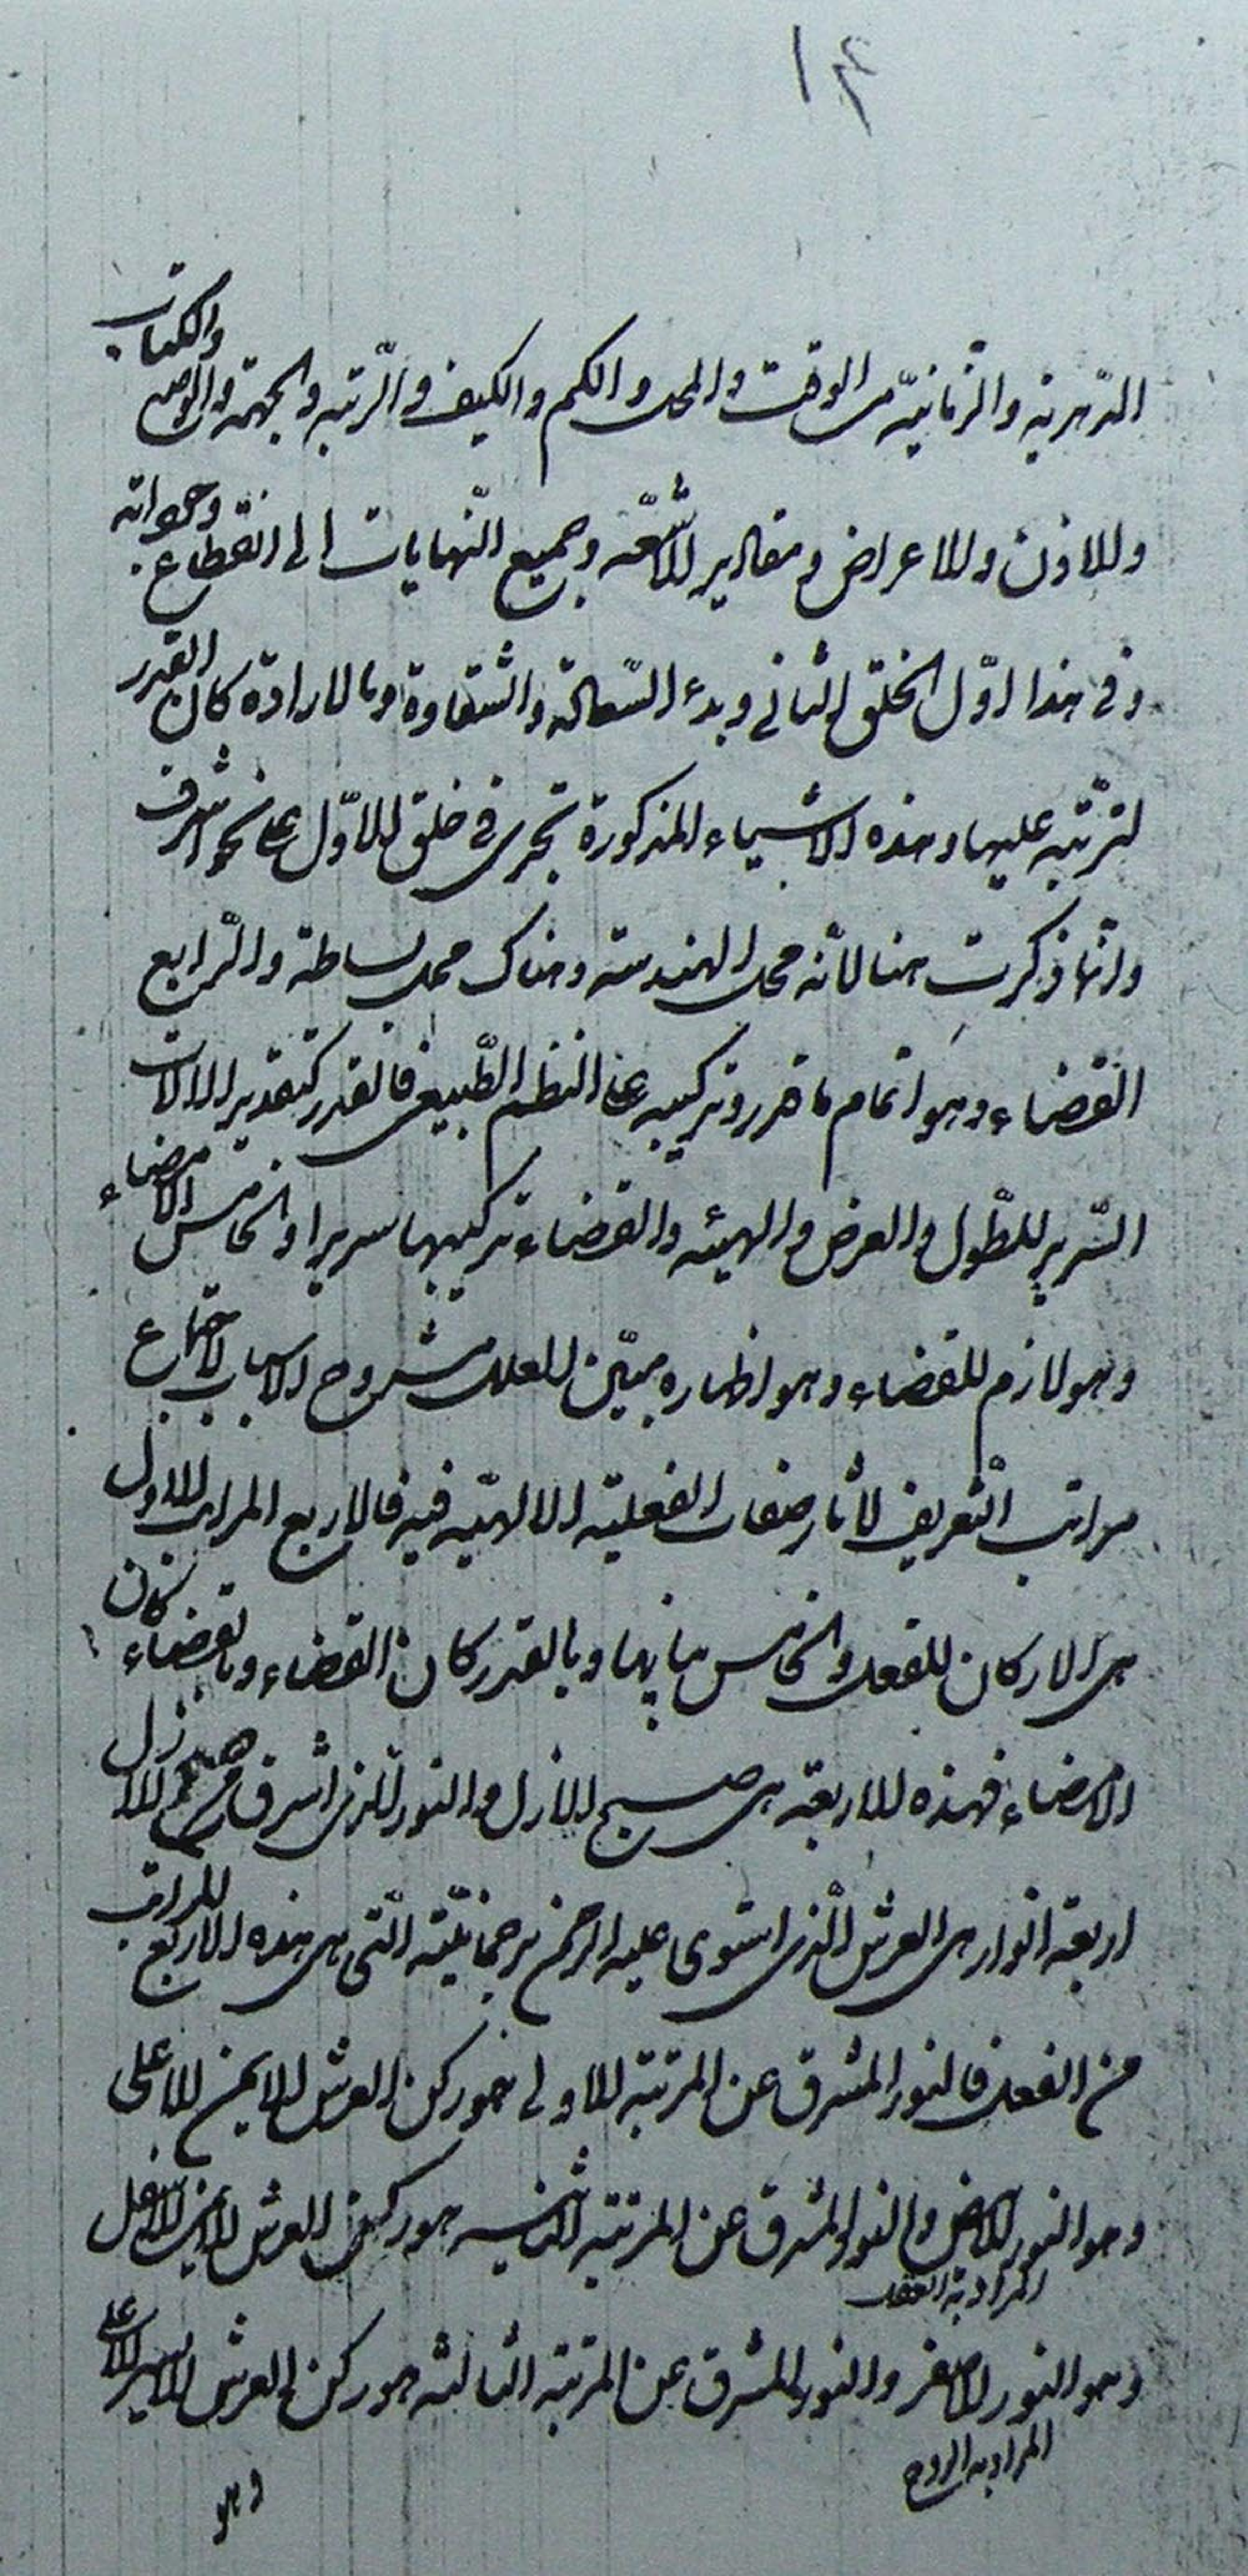 ١٤
الدّهريّة والزّمانيّة من الوقت والمحل والكم والكيف والرّتبه والجهة والوضع والكتاب
والاذن والاعراض ومقادير الاشعّه وجميع النّهايات الى انقطاع وجوداته
وفى هذا اوّل الخلق الثانى وبدء السّعادة والشقاوة وبالارادة كان القدر
لترتّبه عليها وهذه الاشياء المذكورة تجرى فى خلق الاوّل على نحو اشرف
وانّما ذكرت هنا لانّه محل الهندسة وهناك محل بساطة والرّابع
القضاء وهو اتمام ما قدر وتركيبه على النظم الطّبيعى فالقدر كتقدير الالات
السّرير للطّول والعرض والهيئه والقضاء تركيبها سريرا والخامس الامضاء
وهو لازم للقضاء وهو اظهاره مبيّن العلل مشروح الاسباب لاجتماع
مراتب التّعريف لاثار صفات الفعليّة الالهيّه فيه فالاربع المراتب الاول
هى الاركان للفعل والخامس بيانها وبالقدر كان القضاء وبالقضاء كان
الامضاء فهذه الاربعة هى صبح الازل والنور الّذى اشرق من صبح الازل
اربعة انوار هى العرش الّذى استوى عليه الرحمن برحمانيّته الّتى هى هذه الاربع المراتب
من الفعل فالنور المشرق عن المرتبة الاولى هو ركن العرش الايمن الاعلى
وهو النور الابيض والنور المشرق عن المرتبة الثانيه هو ركن العرش الايمن الاسفل
المراد به العقل
وهو النور الاصفر والنور المشرق عن المرتبة الثالثه هو ركن العرش الايسر الاعلى
المراد به الروح
وهو